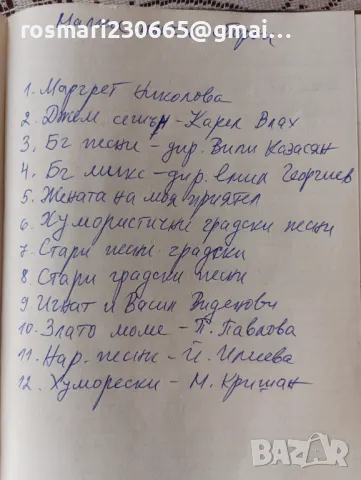 rosmari230665@gmail.com
1. Маргрет Николова
2. Джем сешън - Карел Влах
3. Бг песни - дир. Вили Казасян
4. Бг микс - дир. Емил Георгиев
5. Жената на моя приятел
6. Хумористични градски песни
7. Стари песни градски
8. Стари градски песни
9 Игнат и Васил Виденови
10. Злато моме - П. Павлова
11. Нар. песни - Й. Илиева
12. Хуморески - М. Кришан
bazar